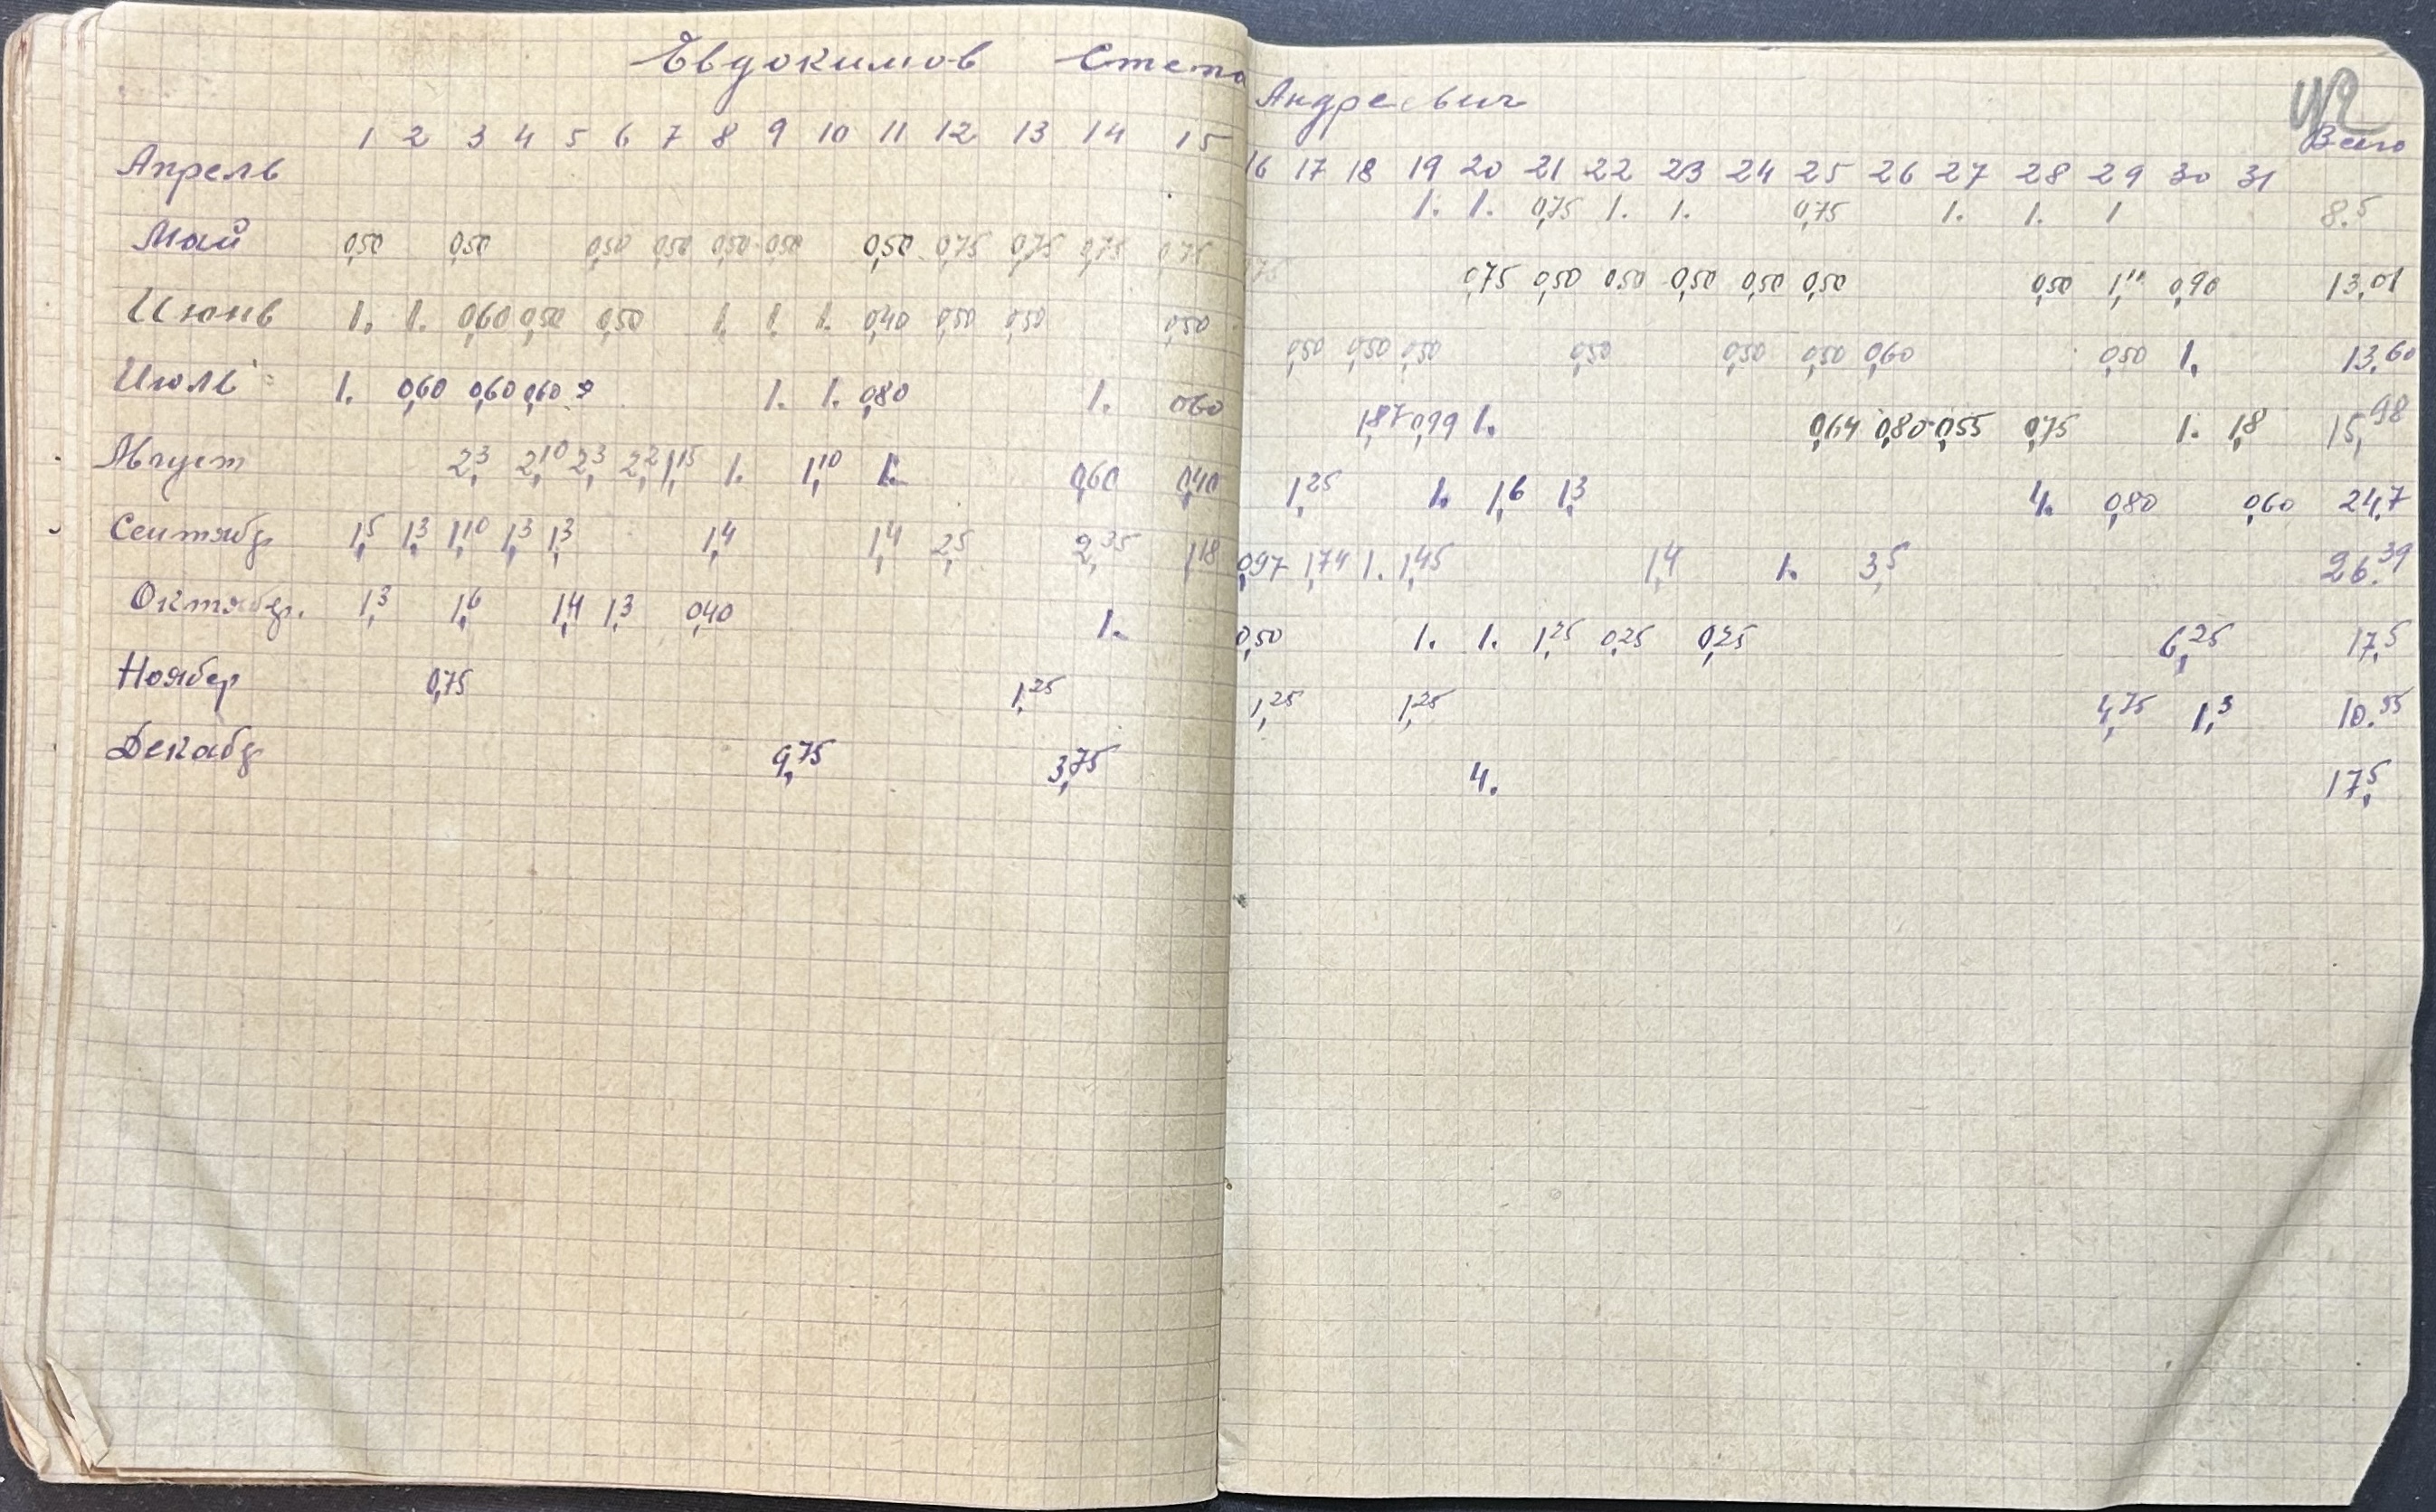 Евдокимов Степа Андреевич
42
1 2 3 4 5 6 7 8 9 10 11 12 13 14 15 16 17 18 19 20 21 22 23 24 25 26 27 28 29 30 31 Всего
Апрель 1. 1. 0,75 1. 1. 0,75 1. 1. 1 8.5
Май 0,50 0,50 0,50 0,50 0,50 0,50 0,50 0,75 0,75 0,75 0,75 0,75 0,75 0,50 0,50 0,50 0,50 0,50 0,50 1,11 0,90 13,01
Июнь 1. 1. 0,60 0,50 0,50 1. 1. 1. 0,40 0,50 0,50 0,50 0,50 0,50 0,50 0,50 0,50 0,50 0,60 0,50 1, 13,60
Июль 1. 0,60 0,60 0,60 1. 1. 0,80 1. 060 1,87 0,99 1. 0,64 0,80 0,55 0,75 1. 1,8 15,98
Август 2,3 2,10 2,3 2,2 1,15 1. 1,10 1. 0,60 0,40 1,25 1. 1,6 1,3 4. 0,80 0,60 24,7
Сентябр 1,5 1,3 1,10 1,3 1,3 1,4 1,4 2,5 2,35 1,18 0,97 1,74 1. 1,45 1,4 1. 3,5 26.39
Октябр. 1,3 1,6 1,4 1,3 0,40 1. 0,50 1. 1. 1,25 0,25 0,25 6,25 17,5
Ноябер 0,75 1,25 1,25 1,25 4,75 1,3 10.55
Декабр 9,75 3,75 4. 17,5